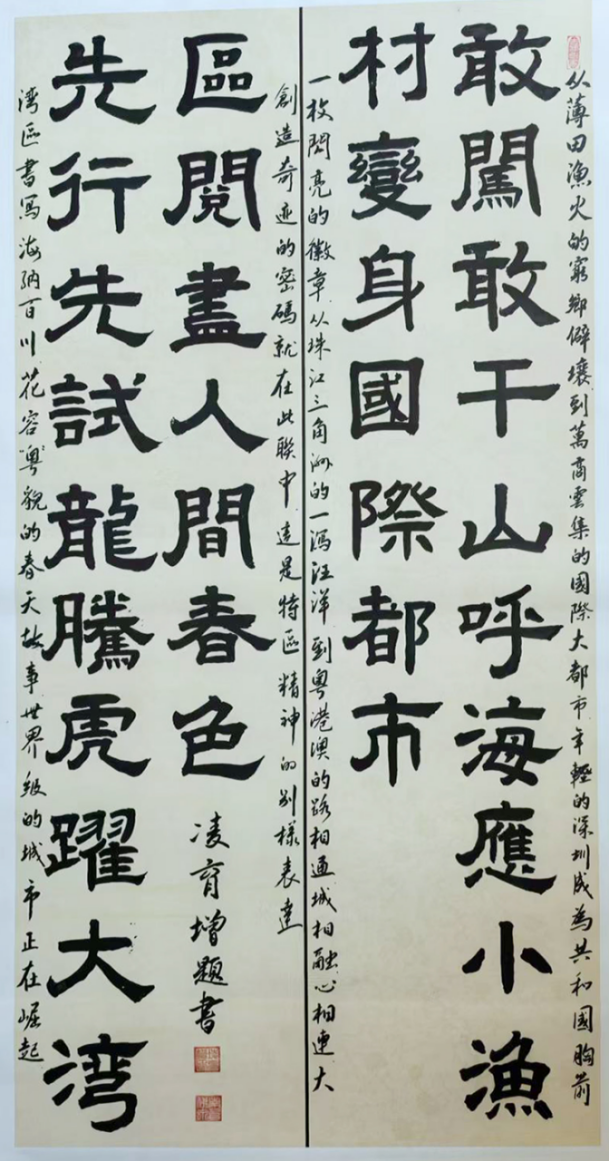 从薄田漁火的窮鄉僻壤到萬商雲集的國際大都市年輕的深圳成為共和國胸前
敢闖敢干山呼海應小漁
村變身國際都市
一枚閃亮的徽章从珠江三角洲的一泻汪洋到粤港澳的路相通城相融心相連大
湾區書写海納百川花容粵貌的春天故事世界級的城市正在崛起
先行先試龍騰虎躍大湾
區閱盡人間春色
創造奇迹的密碼就在此聯中這是特區精神的别樣表達
凌育增題書